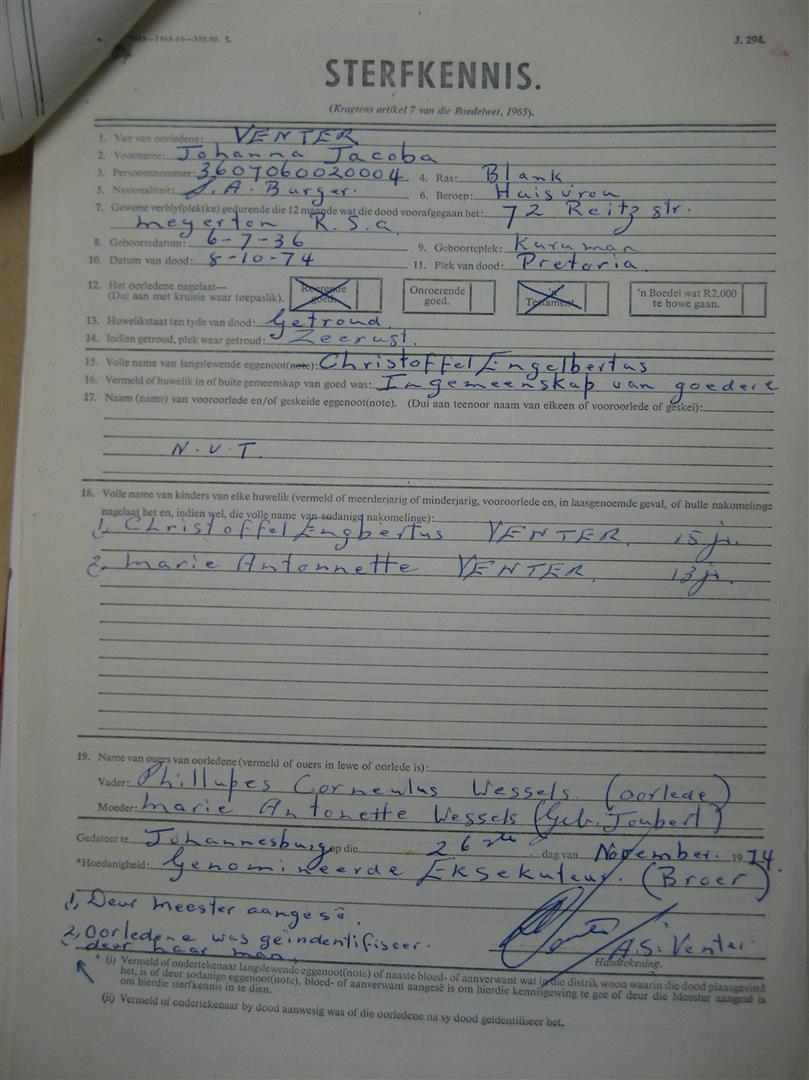 —1968-69—300,00. S. J. 294.
STERFKENNIS.
(Kragtens artikel 7 van die Boedelwet, 1965).
1. Van van oorledene: VENTER
2. Voorname: Johanna Jacoba
3. Persoonsnommer: 3607060020004 4. Ras: Blank
5. Nasionaliteit: S.A. Burger. 6. Beroep: Huisvrou
7. Gewone verblyfplek(ke) gedurende die 12 maande wat die dood voorafgegaan het: 72 Reitz str.
Meyerton R.S.A.
8. Geboortedatum: 6-7-36 9. Geboorteplek: Kuruman
10. Datum van dood: 8-10-74 11. Plek van dood: Pretoria
12. Het oorledene nagelaat—
(Dui aan met kruisie waar toepaslik).
Roerende goed.
Onroerende goed.
'n Testament.
'n Boedel wat R2,000 te bowe gaan.
13. Huwelikstaat ten tyde van dood: Getroud
14. Indien getroud, plek waar getroud: Zeerust.
15. Volle name van langslewende eggenoot(note): Christoffel Engelbertus
16. Vermeld of huwelik in of buite gemeenskap van goed was: In gemeenskap van goedere
17. Naam (name) van vooroorlede en/of geskeide eggenoot(note). (Dui aan teenoor naam van elkeen of vooroorlede of geskei):
N.V.T.
18. Volle name van kinders van elke huwelik (vermeld of meerderjarig of minderjarig, vooroorlede en, in laasgenoemde geval, of hulle nakomelinge
nagelaat het en, indien wel, die volle name van sodanige nakomelinge):
1, Christoffel Engbertus VENTER. 15 jr.
2, Marie Antonnette VENTER. 13 jr.
19. Name van ouers van oorledene (vermeld of ouers in lewe of oorlede is):
Vader: Phillupes Corneulus Wessels. (oorlede)
Moeder: Marie Antonette Wessels (Geb. Joubert)
Gedateer te Johannesburg op die 26ste dag van November. 1974.
*Hoedanigheid: Genomineerde Eksekuteur. (Broer)
1, Deur Meester aangesê.
2, Oorledene was geïndentifiseer.
deur haar man.
A.S. Venter
Handtekening.
* (i) Vermeld of ondertekenaar langslewende eggenoot(note) of naaste bloed- of aanverwant wat in die distrik woon waarin die dood plaasgevind
het, is of deur sodanige eggenoot(note), bloed- of aanverwant aangesê is om hierdie kennisgewing te gee of deur die Meester aangesê is
om hierdie sterfkennis in te dien.
(ii) Vermeld of ondertekenaar by dood aanwesig was of die oorledene na sy dood geïdentifiseer het.